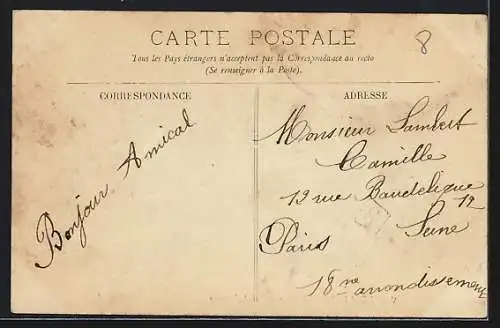 8
CARTE POSTALE
Tous les Pays étrangers n'acceptent pas la Correspondance au recto
(Se renseigner à la Poste).
CORRESPONDANCE
Bonjour Amical
ADRESSE
Monsieur Lambert
Camille
13 rue Baudelique
12
Paris Seine
18me arrondissement